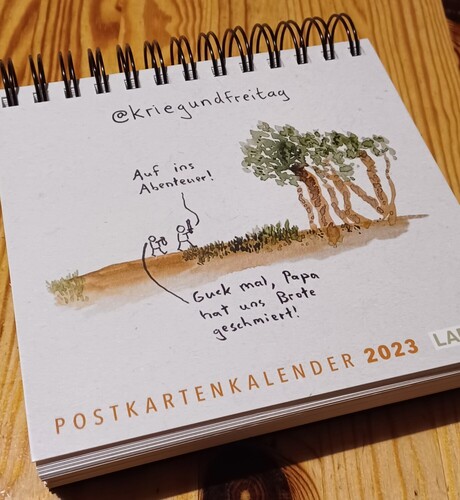 @kriegundfreitag
Auf ins
Abenteuer!
Guck mal, Papa
hat uns Brote
geschmiert!
POSTKARTENKALENDER 2023